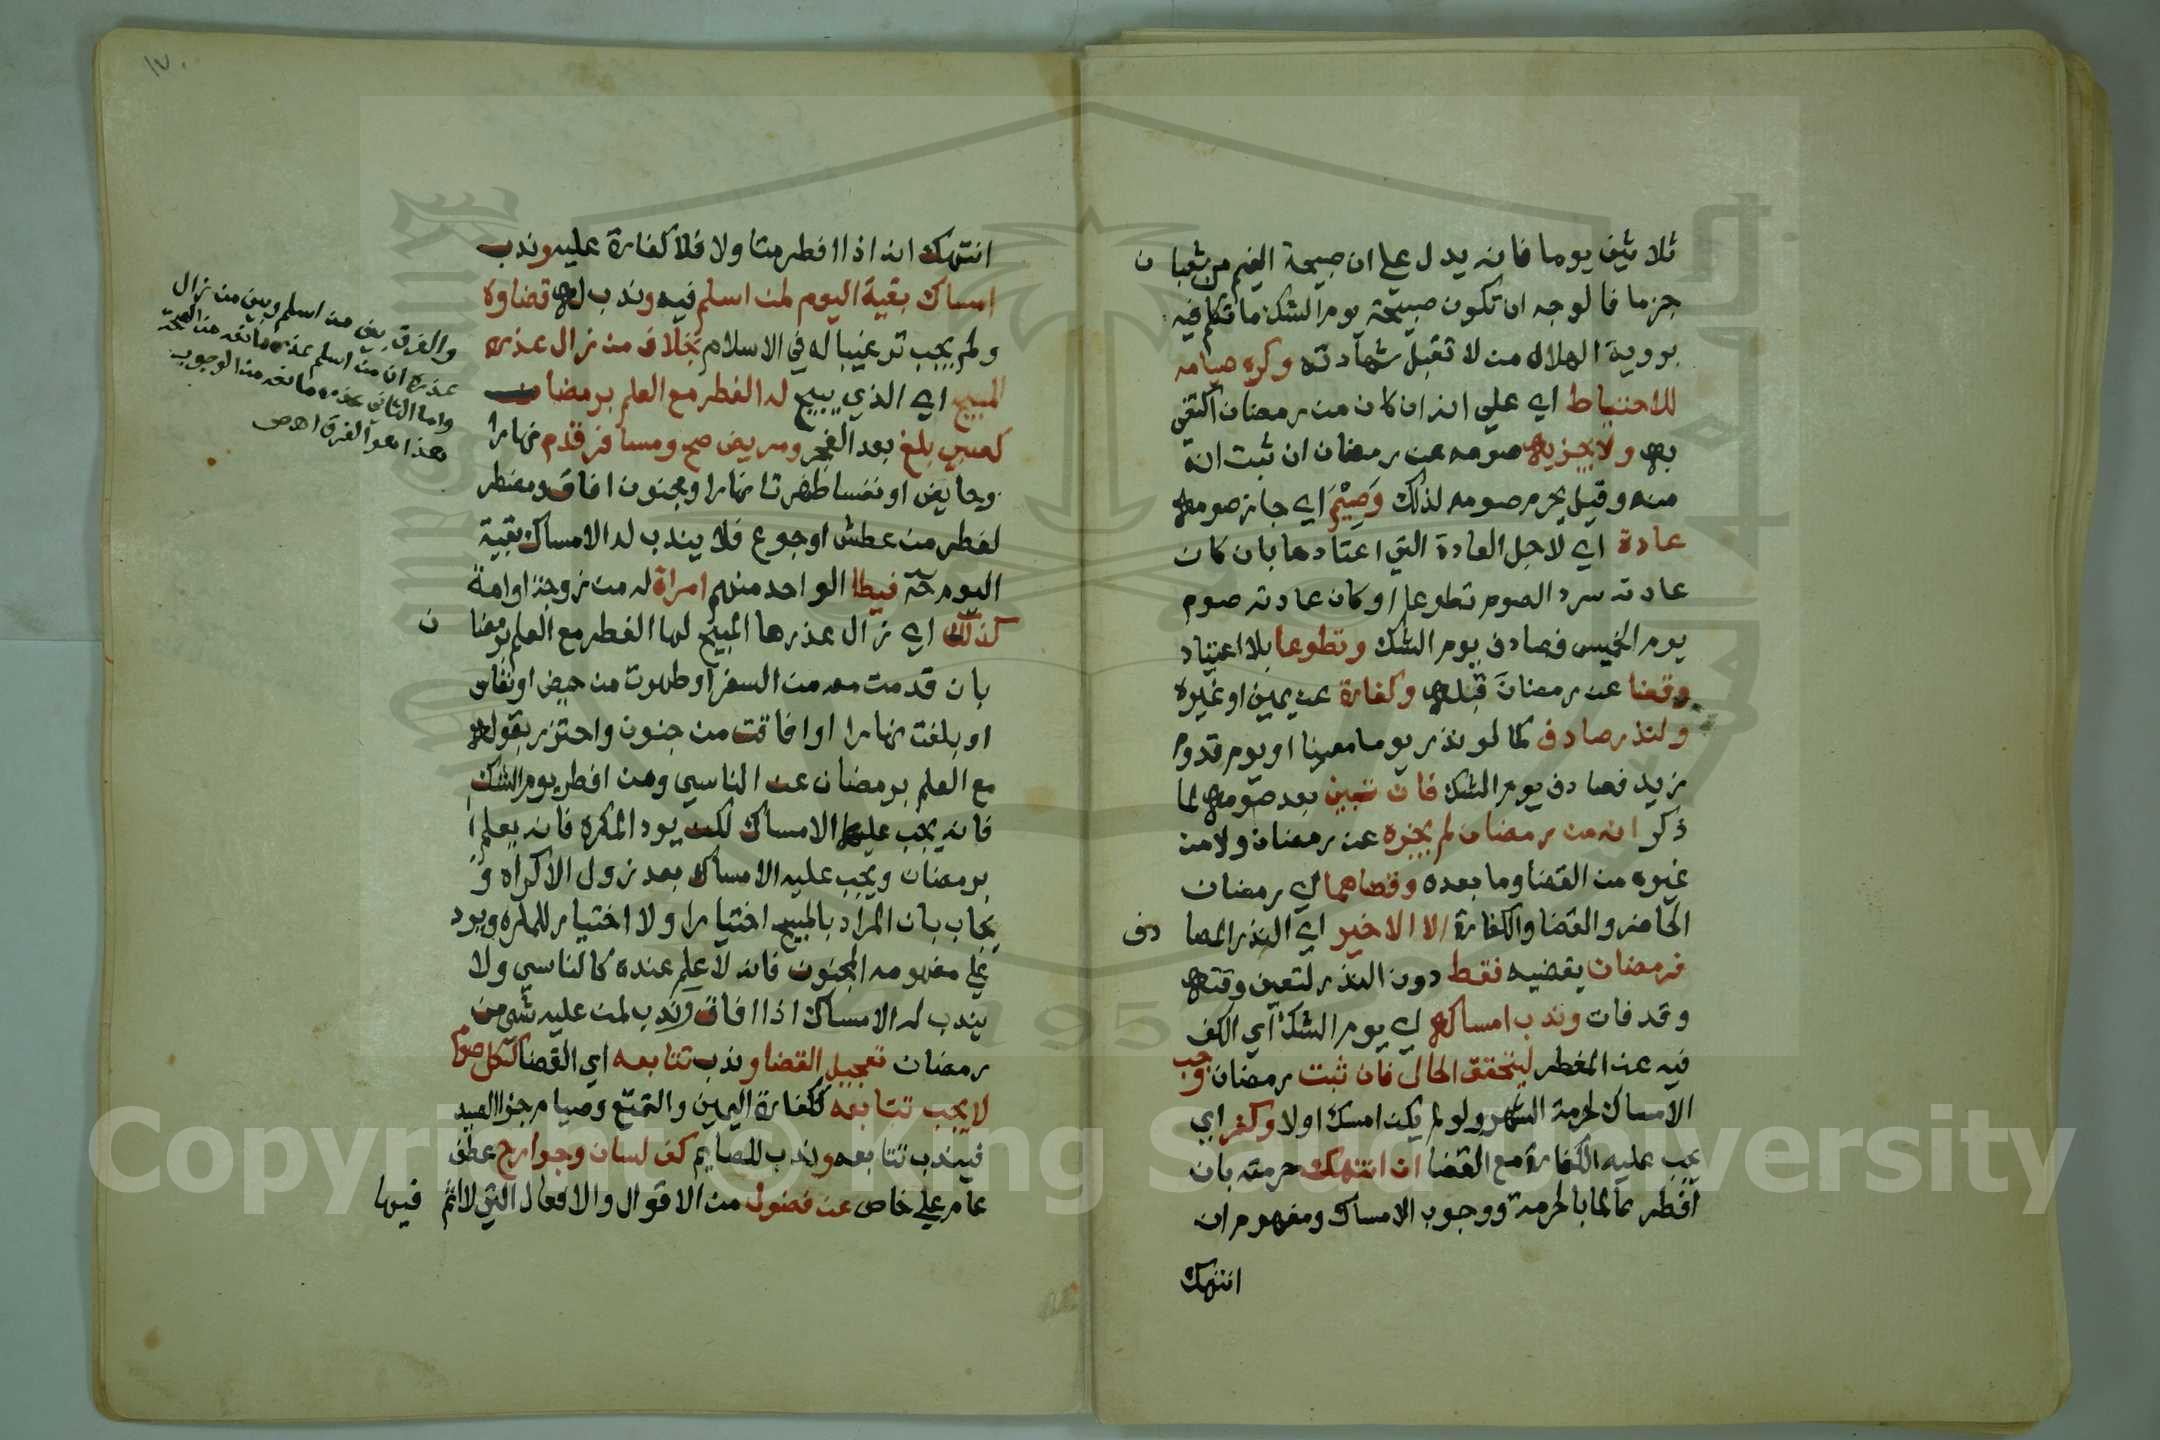 ثلاثين يوما فانه يدل علي ان صبيحة الغيم من شعبان
جزما فالوجه ان تكون صبيحة يوم الشك ما تكلم فيه
بروية الهلال من لا تقبل شهادته وكره صيامه
للاحتياط اي علي انه ان كان من رمضان اكتفي
به ولا يجزيه صومه عن رمضان ان ثبت انه
منه وقيل يحرم صومه لذلك وَصِيْمَ اي جاز صومه
عادة اي لاجل العادة التي اعتادها بان كان
عادته سرد الصوم تطوعا او كان عادته صوم
يوم الخميس فصادف يوم الشك وتطوعا بلا اعتياد
وقضا عن رمضان قبله وكفارة عن يمين او غيره
ولنذر صادف كما لو نذر يوما معينا او يوم قدوم
زيد فصادف يوم الشك فان تبين بعد صومه لما
ذكر انه من رمضان لم يجزه عن رمضان ولا من
غيره من القضا وما بعده وقضاهما اي رمضان
الحاضر والقضا والكفارة الا الاخير اي النذر المصادف
فرمضان يقضيه فقط دون النذر لتعين وقته
وقد فات وندب امساكه اي يوم الشك اي الكف
فيه عن المفطر ليتحقق الحال فان ثبت رمضان وجب
الامساك لحرمة الشهر ولو لم يكن امسك اولا وكفر اي
يجب عليه الكفارة مع القضا ان انتهك حرمته بان
افطر عالما بالحرمة ووجوب الامساك ومفهوم ان
انتهك
١٧٠
انتهك انه اذا افطر متاولا فلا كفارة عليه وندب
امساك بقية اليوم لمن اسلم فيه وندب له قضاوه
ولم يجب ترغيبا له في الاسلام بخلاف من زال عذره
المبيح اي الذي يبيح له الفطر مع العلم برمضان
كصبي بلغ بعد الفجر ومريض صح ومسافر قدم نهارا
وحايض او نفسا طهرتا نهارا ومجنون افاق ومضطر
لفطر من عطش او جوع فلا يندب له الامساك بقية
اليوم حـ فيطا الواحد منهم امراة له من زوجة او امة
كذلك اي زال عذرها المبيح لها الفطر مع العلم برمضان
بان قدمت معه من السفر او طهرت من حيض او نفاس
او بلغت نهارا او افاقت من جنون واحترز بقوله
مع العلم برمضان عن الناسي ومن افطر يوم الشك
فانه يجب عليه الامساك لكن يرد المكره فانه يعلم
برمضان ويجب عليه الامساك بعد زوال الاكراه و
يجاب بان المراد بالمبيح اختيارا ولا اختيار للمكره ويرد
علي مفهومه المجنون فانه لا علم عنده كالناسي ولا
يندب له الامساك اذا افاق وندب لمن عليه شي من
رمضان تعجيل القضا وندب تتابعه اي القضا ككل صوم
لا يجب تتابعه ككفارة اليمين والتمتع وصيام جزا الصيد
فيندب تتابعه وندب للصايم كف لسان وجوارح عطف
عام علي خاص عن فضول من الاقوال والافعال التي لا اثم فيها
والفرق بين من اسلم وبين من زال
عذره ان من اسلم عذره مانعه من الصحة
واما الثاني عذره مانعه من الوجوب
هذا هو الفرق اهـ ص
Copyright © King Saud University
1957